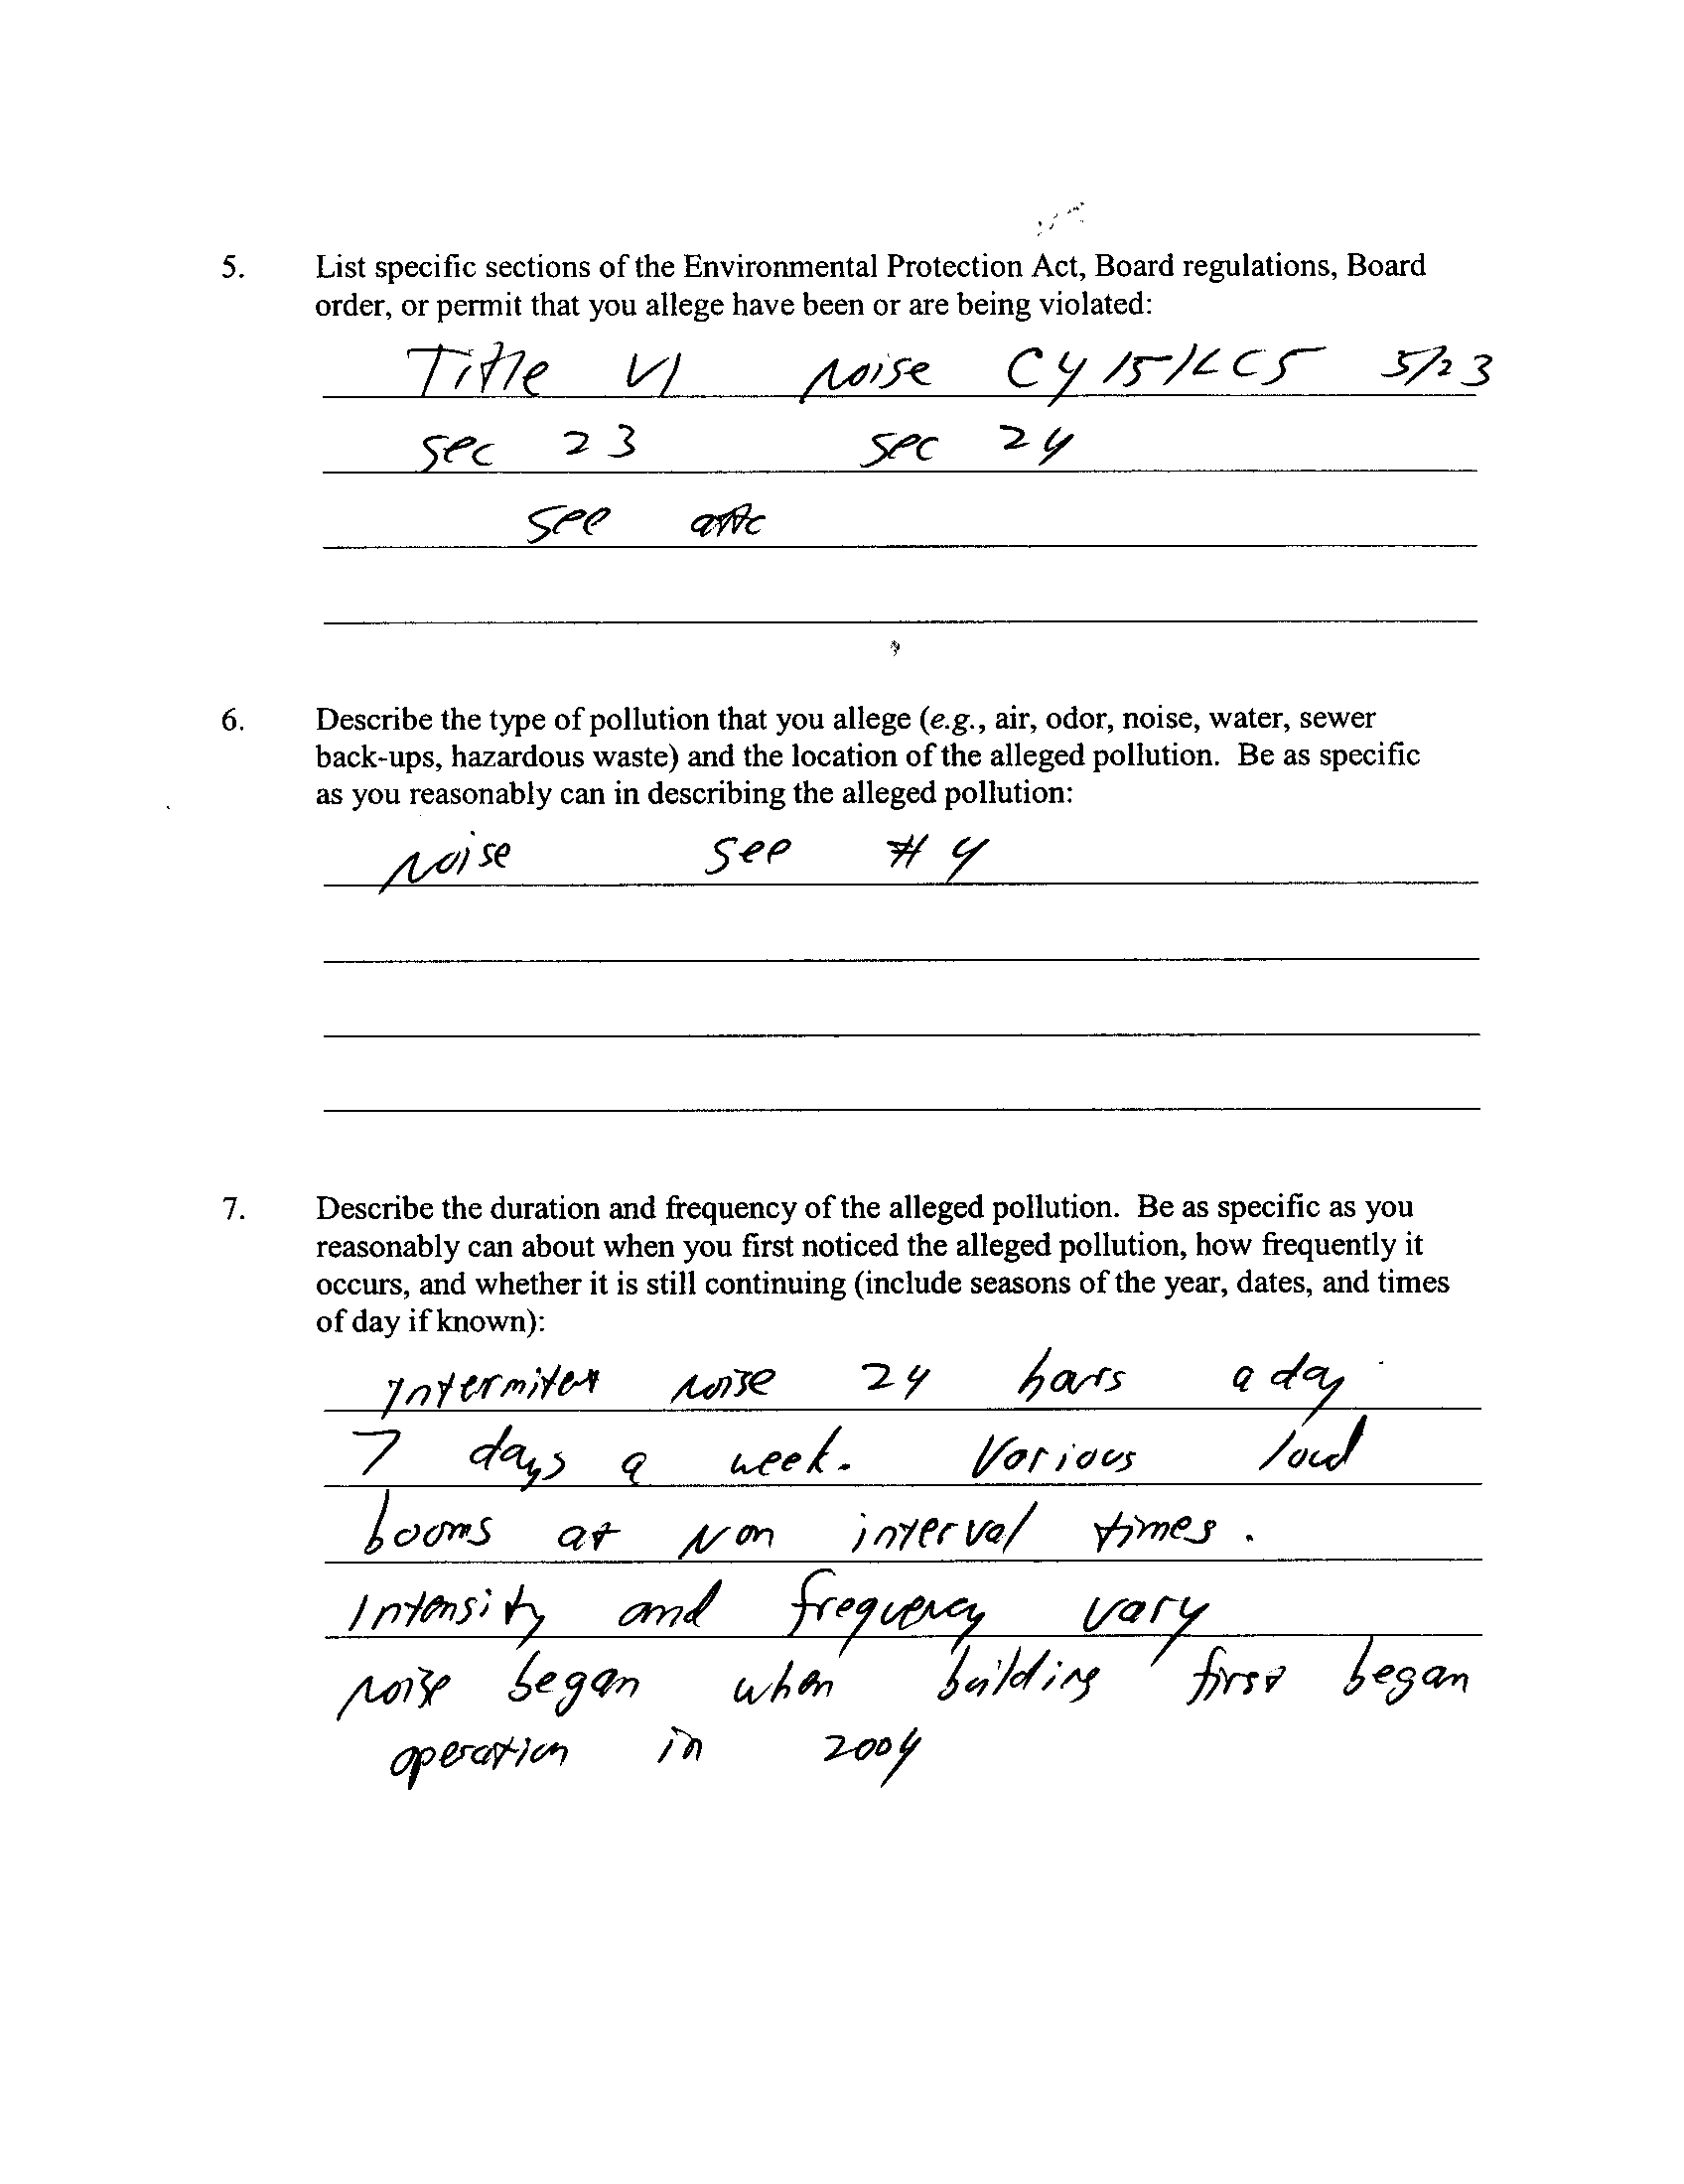 5. List specific sections of the Environmental Protection Act, Board regulations, Board
order, or permit that you allege have been or are being violated:
Title VI Noise (415 ILCS 5/23
sec 23 sec 24
see
6. Describe the type of pollution that you allege (e.g., air, odor, noise, water, sewer
back-ups, hazardous waste) and the location of the alleged pollution. Be as specific
as you reasonably can in describing the alleged pollution:
Noise see # 4
7. Describe the duration and frequency of the alleged pollution. Be as specific as you
reasonably can about when you first noticed the alleged pollution, how frequently it
occurs, and whether it is still continuing (include seasons of the year, dates, and times
of day if known):
Intermitent noise 24 hours a day
7 days a week. Various loud
booms at Non interval times.
Intensity and frequency vary
Noise began when building first began
operation in 2004